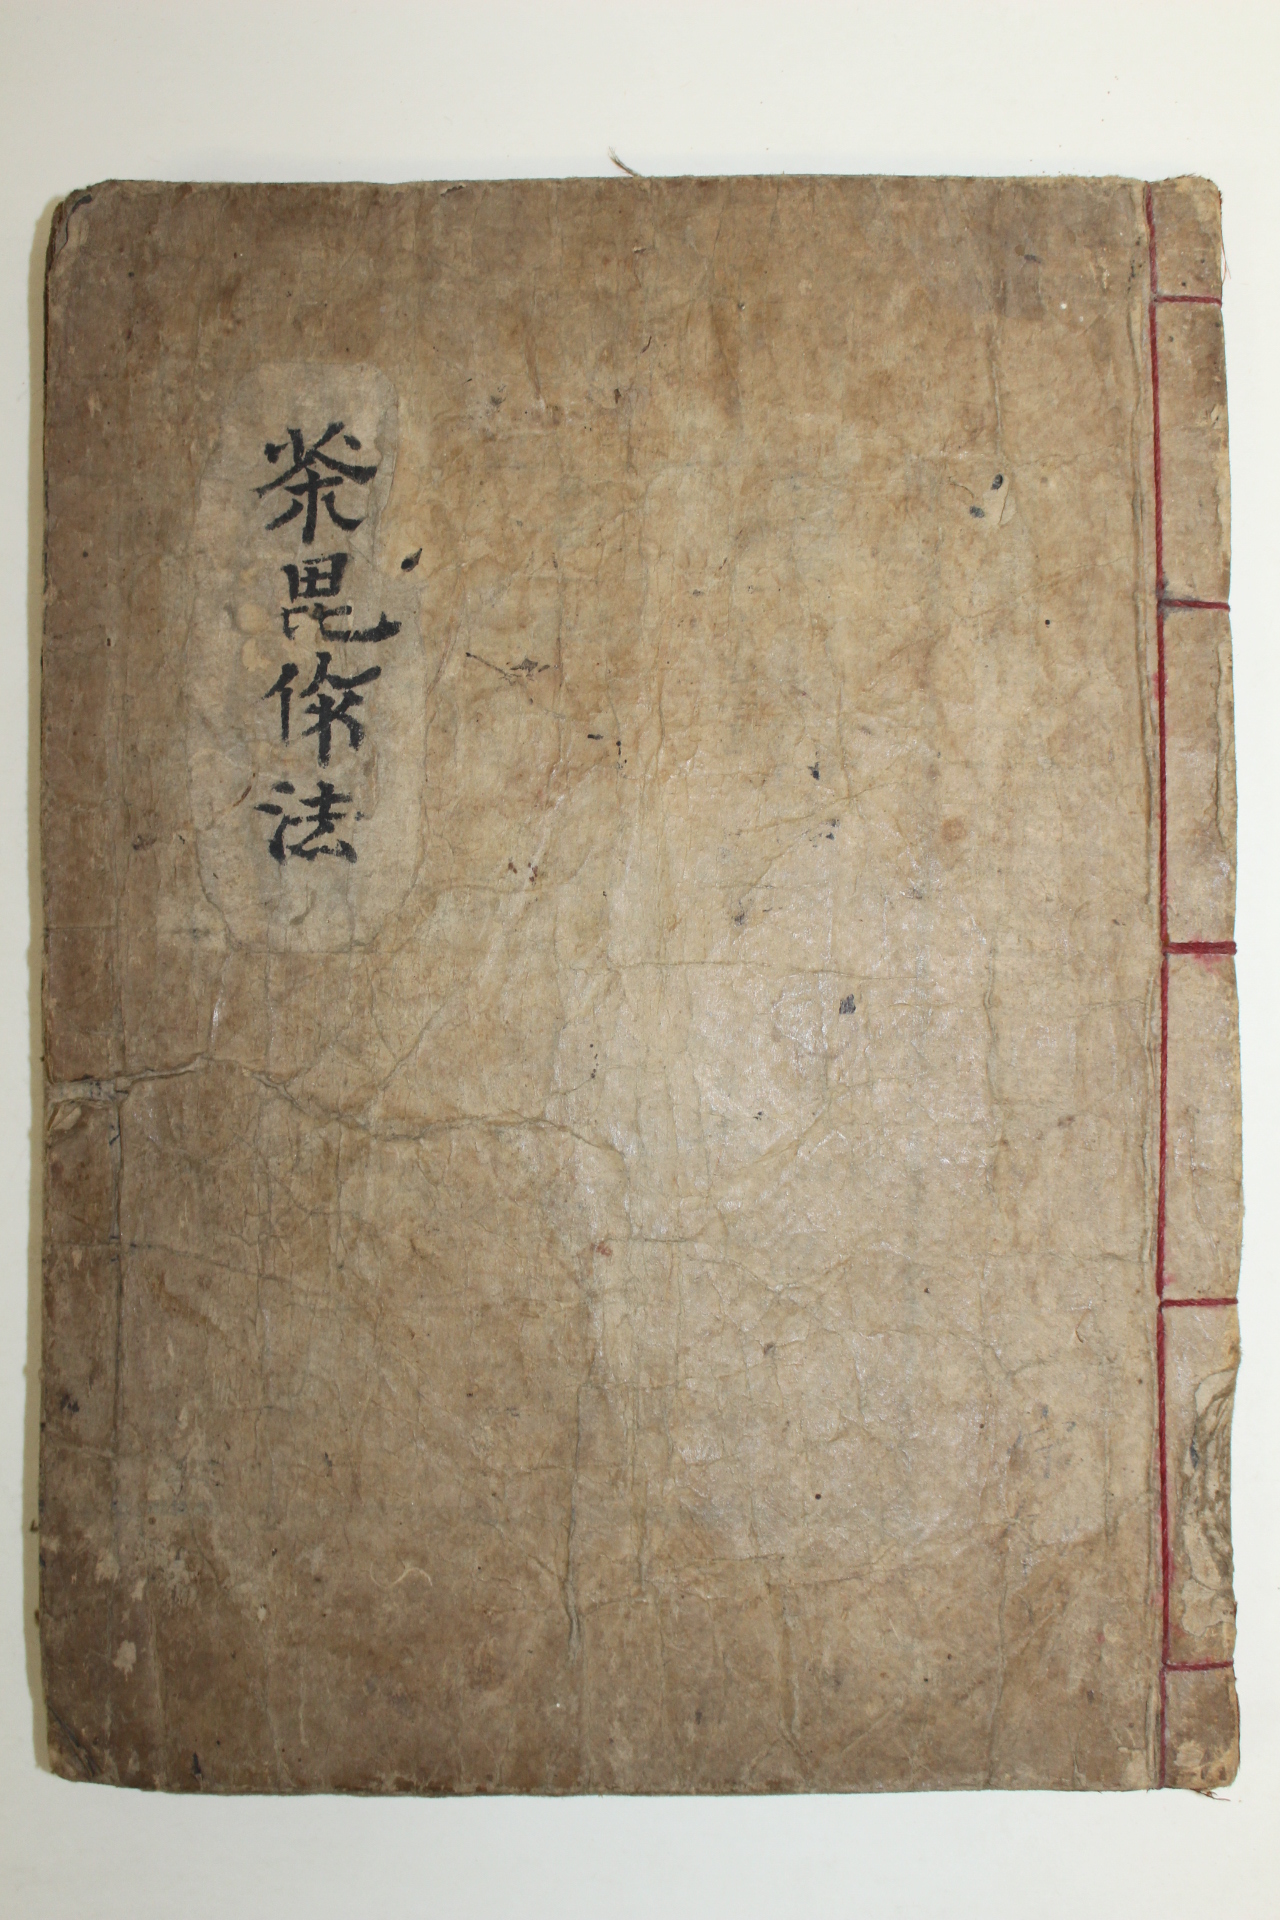 茶毘作法